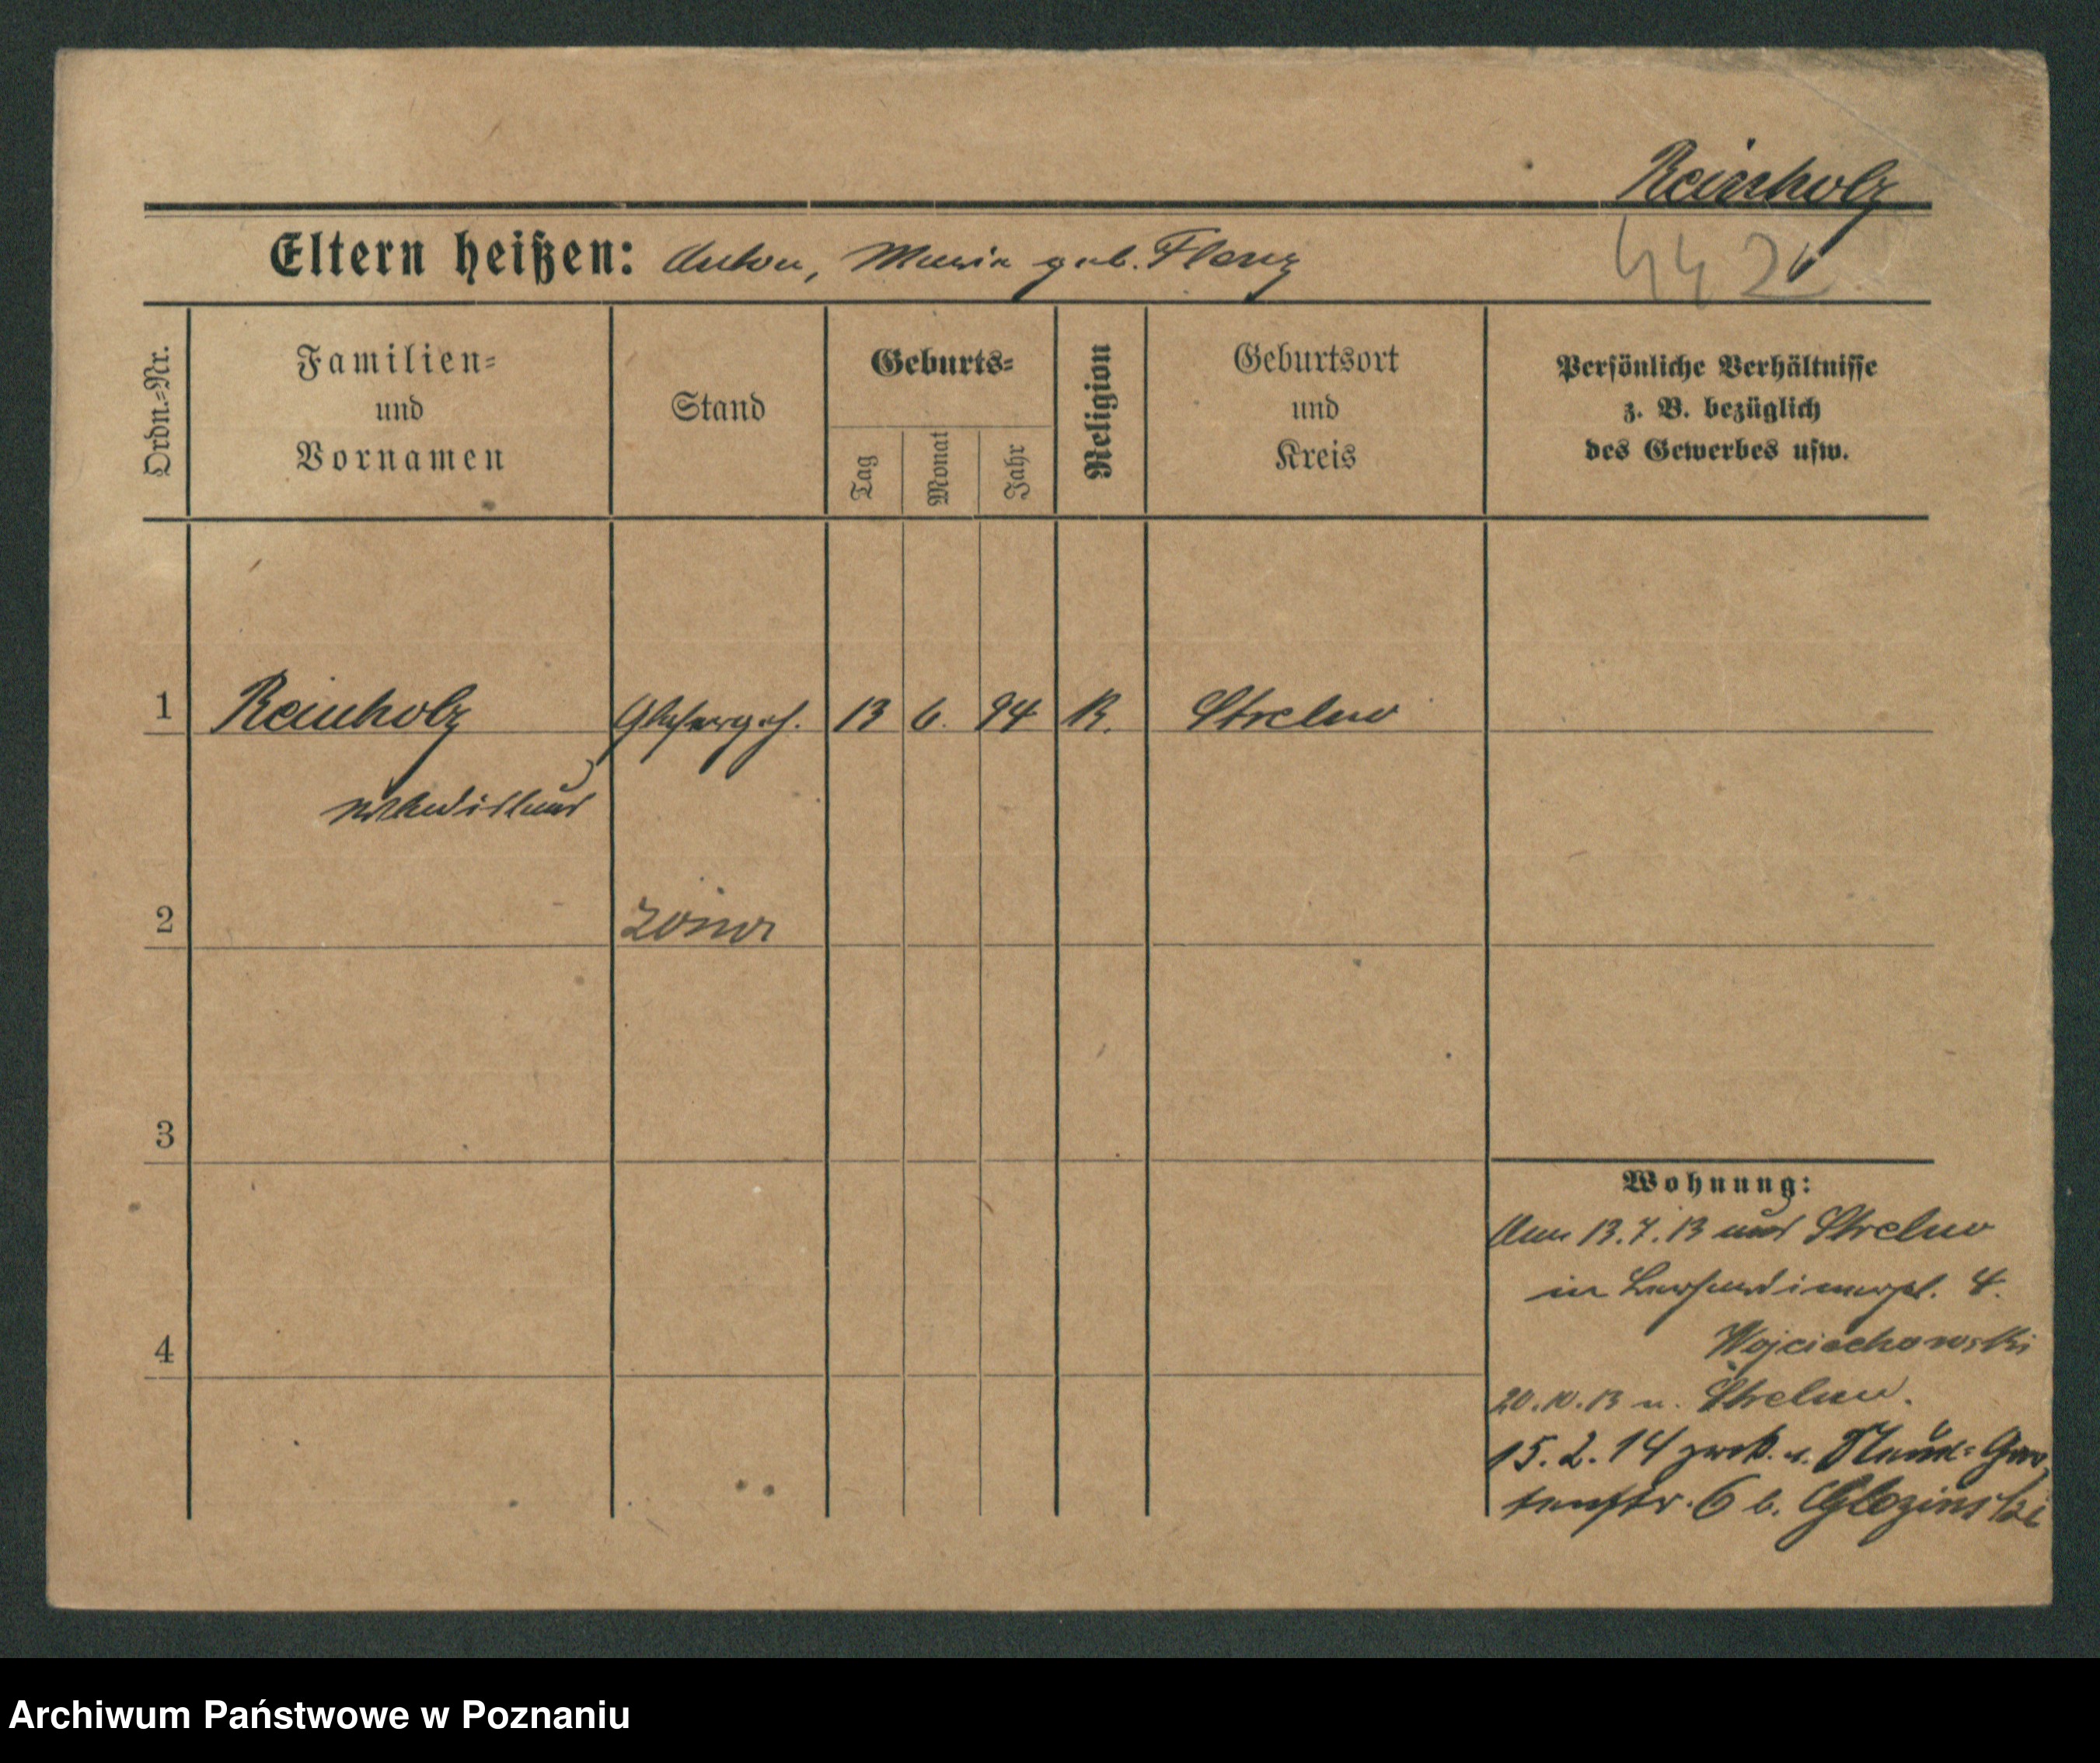 Reinholz
Eltern heißen: Anton, Maria geb. Flenz
442
Ordn.=Nr.
Familien=
und
Vornamen
Stand
Geburts=
Tag
Monat
Jahr
Religion
Geburtsort
und
Kreis
Persönliche Verhältnisse
z. B. bezüglich
des Gewerbes usw.
1 Reinholz 13 6. 94 K. Strelno
2
3
4
Wohnung:
Am 13.7.13 aus Strelno
in Bernhardinerpl. 4.
Wojciechowski
20.10.13 n. Strelno.
15.2.14 zurück. n. Neue=Gar
tenstr. 6 b. Glozinski
Archiwum Państwowe w Poznaniu